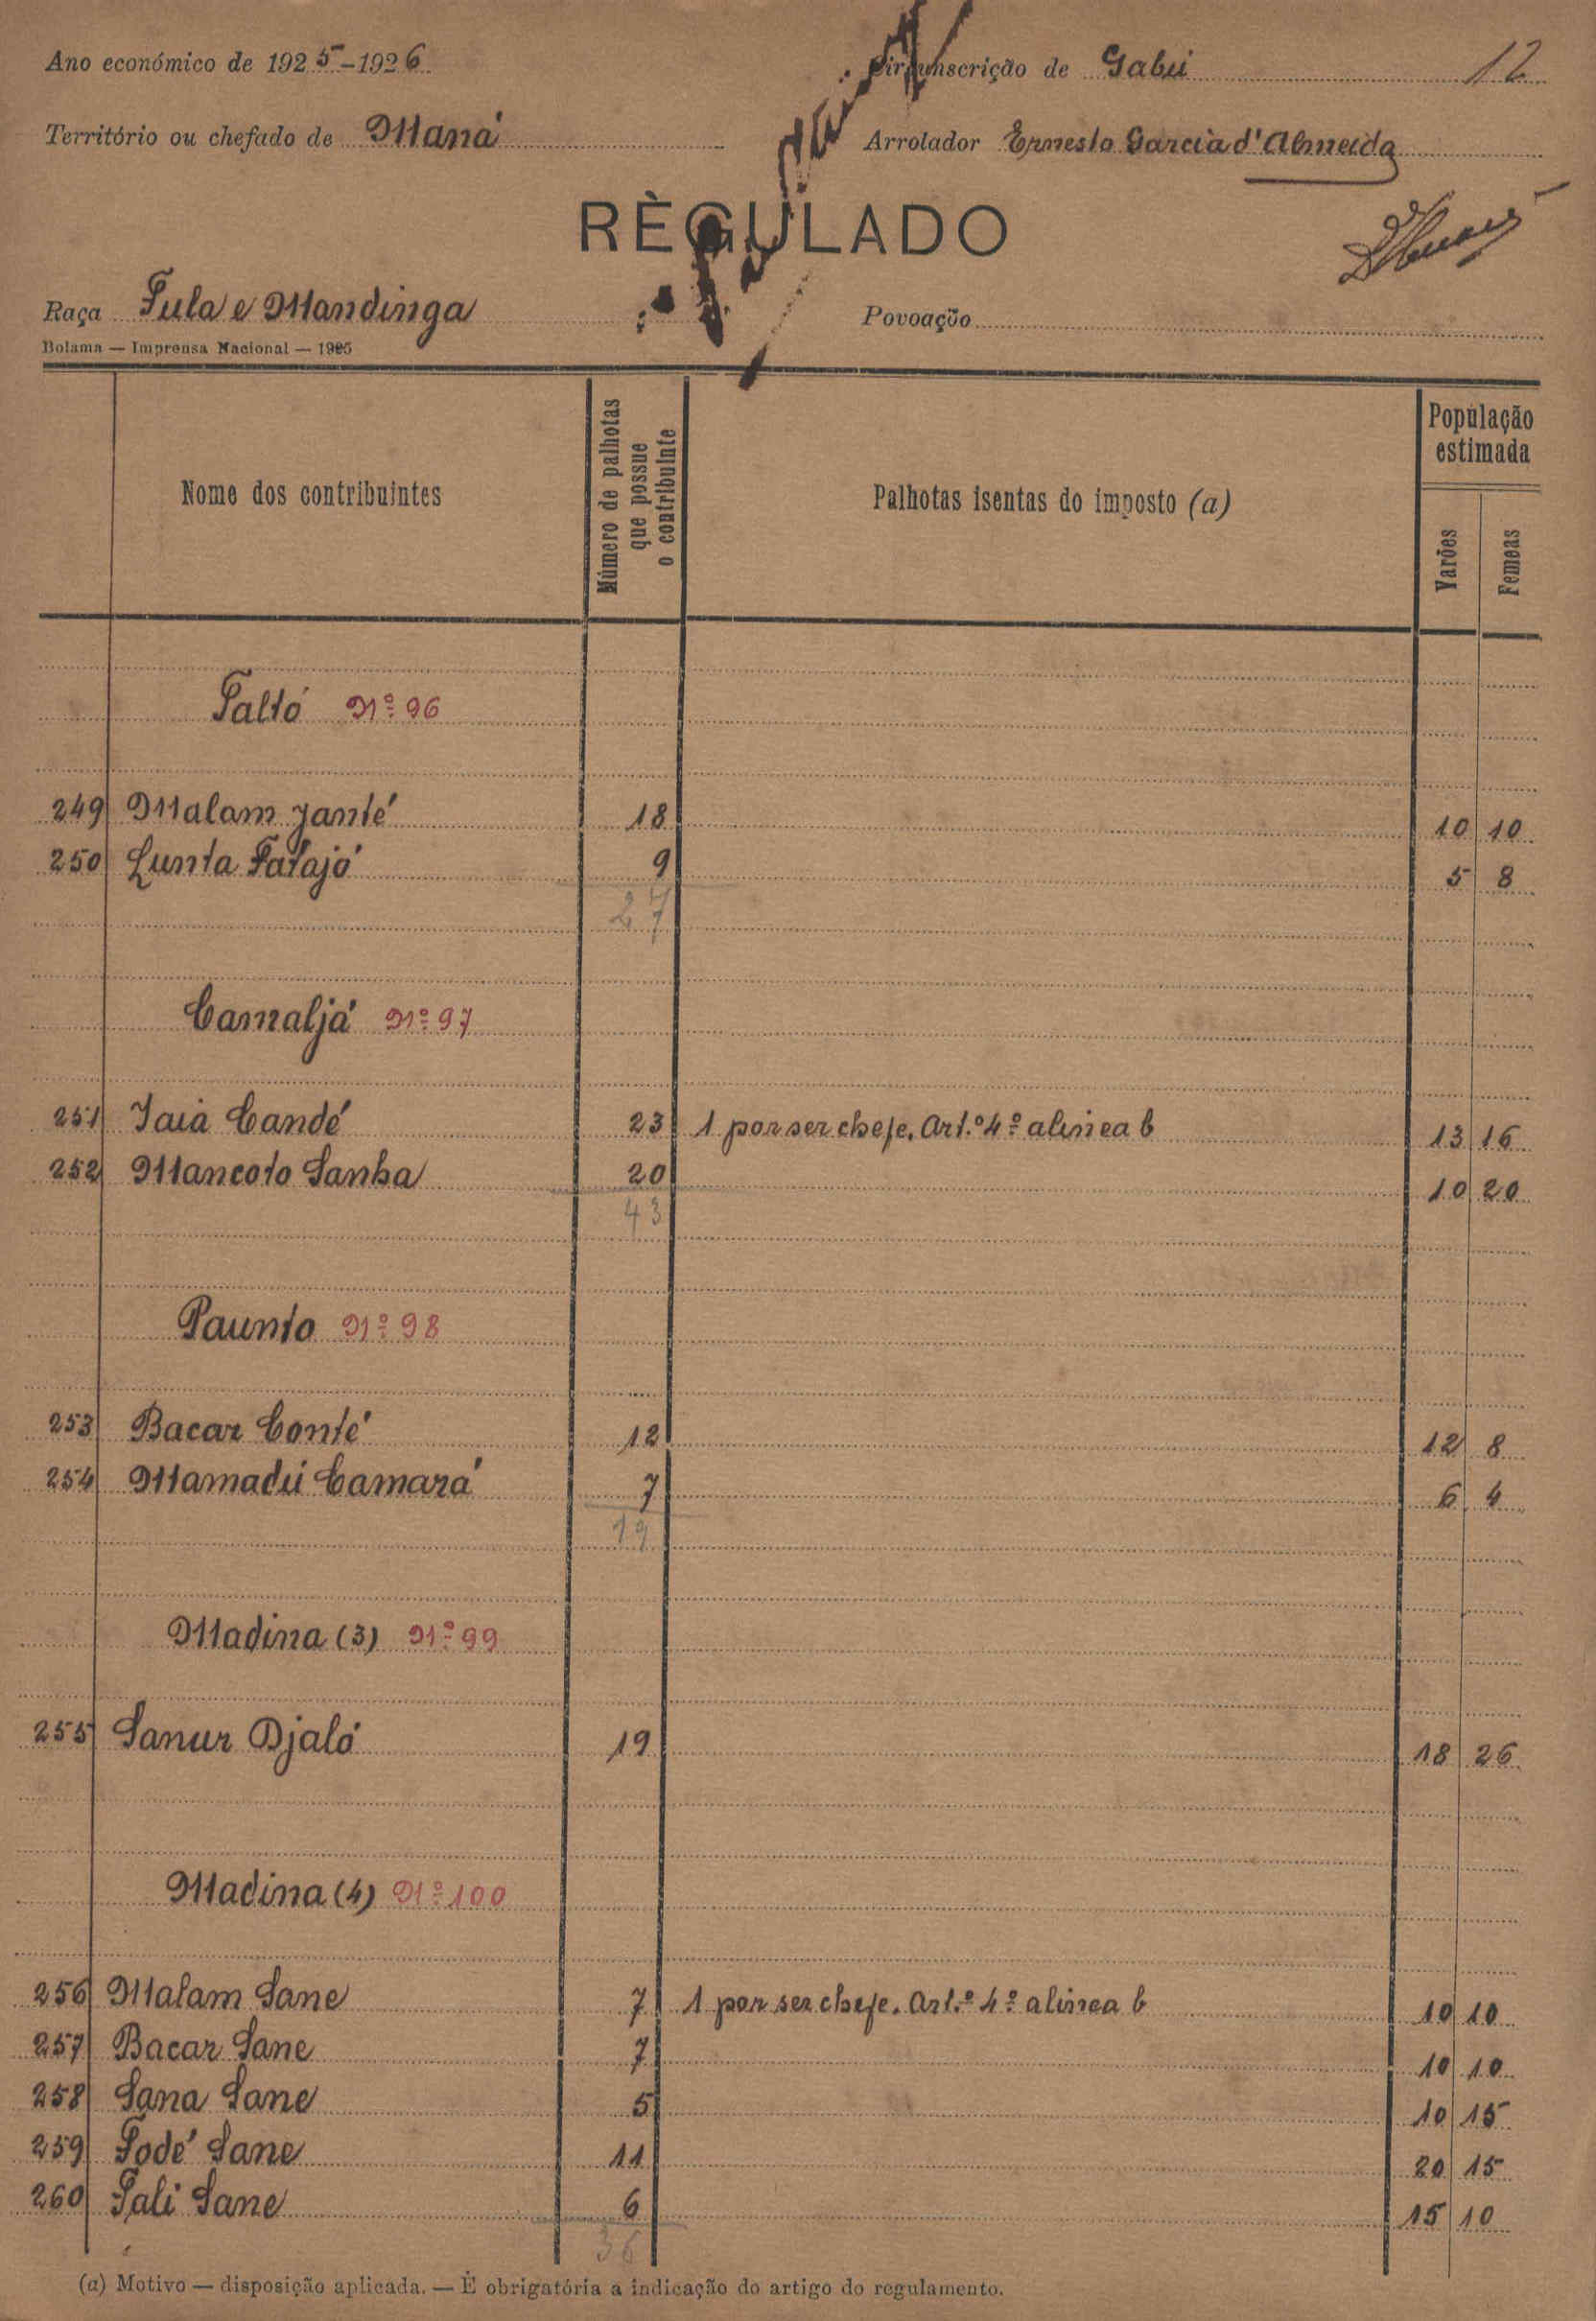 Ano económico de 1925-1926 Circunscrição de Gabú 12
Território ou chefado de Maná Arrolador Ernesto Garcia d'Almeida
RÈGULADO
Raça Fula e Mandinga Povoação
Bolama — Imprensa Nacional — 1925
Nome dos contribuintes Número de palhotas que possue o contribuinte Palhotas isentas do imposto (a) População estimada Varões Femeas
Faltó Nº 96
249 Malam Janté 18 10 10
250 Lunta Fatajó 9 5 8
27
Camaljá Nº 97
251 Jaiá Candé 23 1 por ser chefe. Art.º 4º alinea b 13 16
252 Mancoto Sanha 20 10 20
43
Paunto Nº 98
253 Bacar Conté 12 12 8
254 Mamadú Camará 7 6 4
19
Madina (3) Nº 99
255 Sanur Djaló 19 18 26
Madina (4) Nº 100
256 Malam Sane 7 1 por ser chefe. Art.º 4º alinea b 10 10
257 Bacar Sane 7 10 10
258 Sana Sane 5 10 15
259 Fodé Sane 11 20 15
260 Fali Sane 6 15 10
36
(a) Motivo — disposição aplicada. — É obrigatória a indicação do artigo do regulamento.